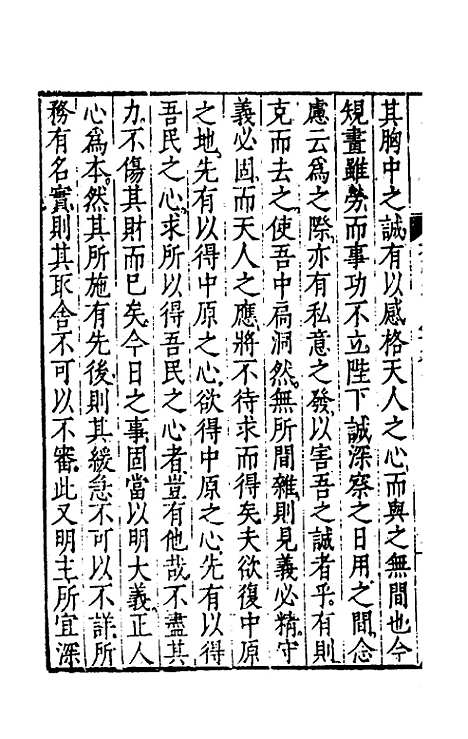 其胸中之誠有以感格天人之心而與之無間也今
規畫雖勞而事功不立陛下誠深察之日用之間念
慮云爲之際亦有私意之發以害吾之誠者乎有則
克而去之使吾中扃洞然無所間雜則見義必精守
義必固而天人之應將不待求而得矣夫欲復中原
之地先有以得中原之心欲得中原之心先有以得
吾民之心求所以得吾民之心者豈有他哉不盡其
力不傷其財而已矣今日之事固當以明大義正人
心爲本然其所施有先後則其緩急不可以不詳所
務有名實則其取舍不可以不審此又明主所宜深